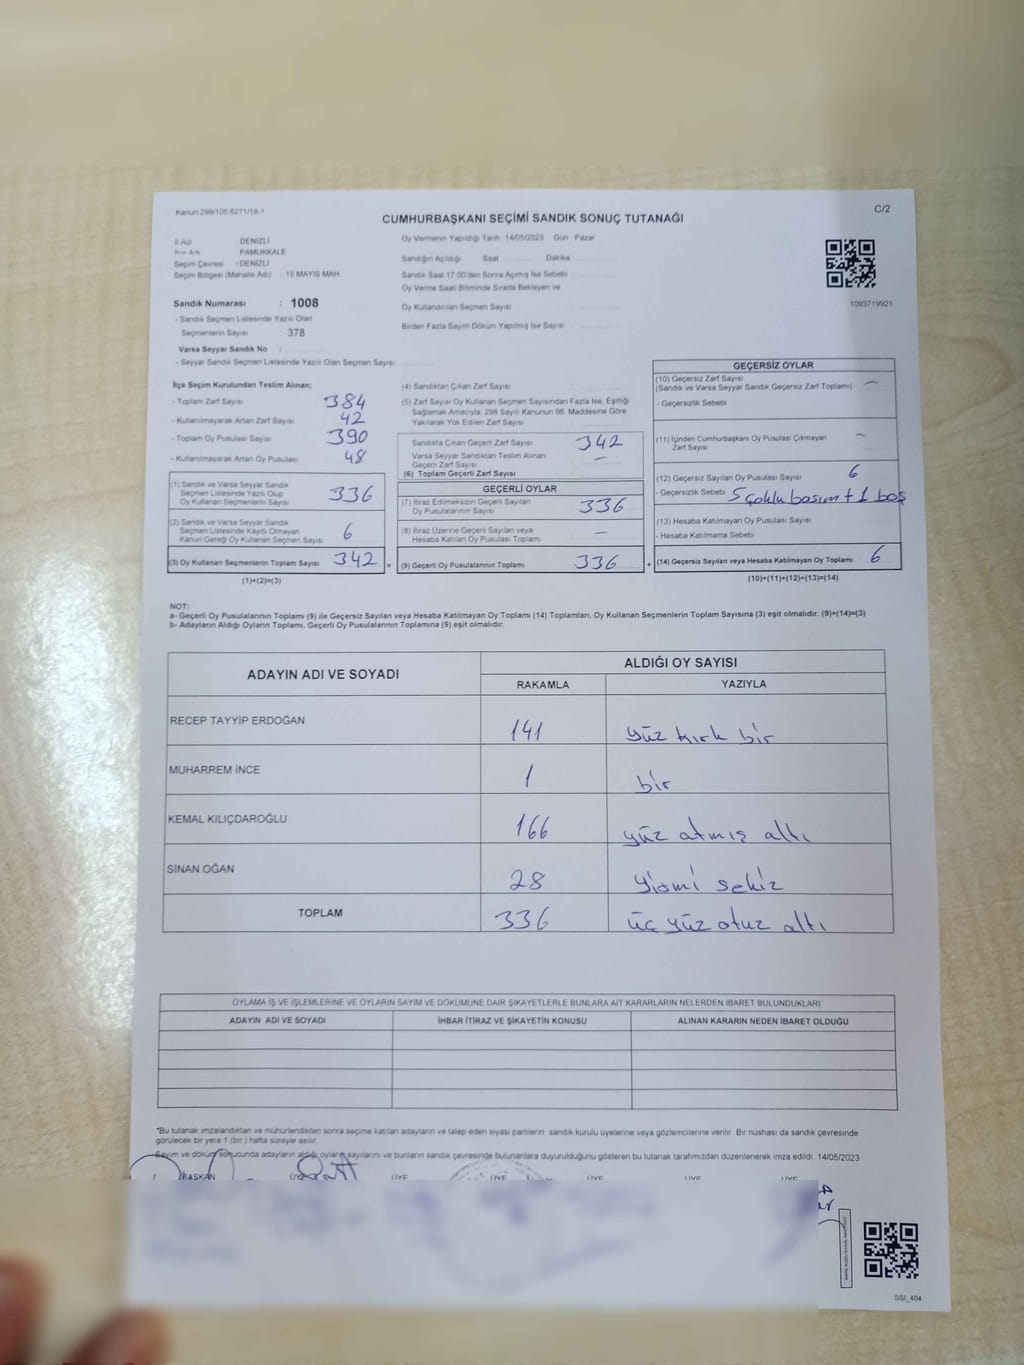 Kanun:298/105 6271/18-1
C/2
CUMHURBAŞKANI SEÇİMİ SANDIK SONUÇ TUTANAĞI
İl Adı DENİZLİ
İlçe Adı PAMUKKALE
Seçim Çevresi : DENİZLİ
Seçim Bölgesi (Mahalle Adı) : 15 MAYIS MAH.
Oy Vermenin Yapıldığı Tarih : 14/05/2023 Gün : Pazar
Sandığın Açıldığı Saat Dakika
Sandık Saat 17:00'den Sonra Açılmış İse Sebebi
Oy Verme Saati Bitiminde Sırada Bekleyen ve
Oy Kullandırılan Seçmen Sayısı
Birden Fazla Sayım Döküm Yapılmış İse Sayısı
1093719921
Sandık Numarası : 1008
- Sandık Seçmen Listesinde Yazılı Olan
Seçmenlerin Sayısı : 378
Varsa Seyyar Sandık No :
- Seyyar Sandık Seçmen Listesinde Yazılı Olan Seçmen Sayısı:
İlçe Seçim Kurulundan Teslim Alınan;
- Toplam Zarf Sayısı 384
- Kullanılmayarak Artan Zarf Sayısı 42
- Toplam Oy Pusulası Sayısı 390
- Kullanılmayarak Artan Oy Pusulası 48
(1) Sandık ve Varsa Seyyar Sandık
Seçmen Listesinde Yazılı Olup
Oy Kullanan Seçmenlerin Sayısı 336
(2) Sandık ve Varsa Seyyar Sandık
Seçmen Listesinde Kayıtlı Olmayan
Kanun Gereği Oy Kullanan Seçmen Sayısı 6
(3) Oy Kullanan Seçmenlerin Toplam Sayısı 342 =
(1)+(2)=(3)
(4) Sandıktan Çıkan Zarf Sayısı
(5) Zarf Sayısı Oy Kullanan Seçmen Sayısından Fazla İse, Eşitliği
Sağlamak Amacıyla; 298 Sayılı Kanunun 98. Maddesine Göre
Yakılarak Yok Edilen Zarf Sayısı
Sandıkta Çıkan Geçerli Zarf Sayısı 342
Varsa Seyyar Sandıktan Teslim Alınan
Geçerli Zarf Sayısı —
(6) Toplam Geçerli Zarf Sayısı
GEÇERLİ OYLAR
(7) İtiraz Edilmeksizin Geçerli Sayılan
Oy Pusulalarının Sayısı 336
(8) İtiraz Üzerine Geçerli Sayılan veya
Hesaba Katılan Oy Pusulası Toplamı —
(9) Geçerli Oy Pusulalarının Toplamı 336 +
GEÇERSİZ OYLAR
(10) Geçersiz Zarf Sayısı
(Sandık ve Varsa Seyyar Sandık Geçersiz Zarf Toplamı) —
- Geçersizlik Sebebi
(11) İçinden Cumhurbaşkanı Oy Pusulası Çıkmayan —
Zarf Sayısı
(12) Geçersiz Sayılan Oy Pusulası Sayısı 6
- Geçersizlik Sebebi 5 çoklu basım + 1 boş
(13) Hesaba Katılmayan Oy Pusulası Sayısı
- Hesaba Katılmama Sebebi
(14) Geçersiz Sayılan veya Hesaba Katılmayan Oy Toplamı 6
(10)+(11)+(12)+(13)=(14)
NOT:
a- Geçerli Oy Pusulalarının Toplamı (9) ile Geçersiz Sayılan veya Hesaba Katılmayan Oy Toplamı (14) Toplamları, Oy Kullanan Seçmenlerin Toplam Sayısına (3) eşit olmalıdır. (9)+(14)=(3)
b- Adayların Aldığı Oyların Toplamı, Geçerli Oy Pusulalarının Toplamına (9) eşit olmalıdır.
ADAYIN ADI VE SOYADI ALDIĞI OY SAYISI
RAKAMLA YAZIYLA
RECEP TAYYİP ERDOĞAN 141 yüz kırk bir
MUHARREM İNCE 1 bir
KEMAL KILIÇDAROĞLU 166 yüz atmış altı
SİNAN OĞAN 28 yirmi sekiz
TOPLAM 336 üç yüz otuz altı
OYLAMA İŞ VE İŞLEMLERİNE VE OYLARIN SAYIM VE DÖKÜMÜNE DAİR ŞİKAYETLERLE BUNLARA AİT KARARLARIN NELERDEN İBARET BULUNDUKLARI
ADAYIN ADI VE SOYADI İHBAR İTİRAZ VE ŞİKAYETİN KONUSU ALINAN KARARIN NEDEN İBARET OLDUĞU
*Bu tutanak imzalandıktan ve mühürlendikten sonra seçime katılan adayların ve talep eden siyasi partilerin sandık kurulu üyelerine veya gözlemcilerine verilir. Bir nüshası da sandık çevresinde
görülecek bir yere 1 (bir ) hafta süreyle asılır.
Sayım ve döküm sonucunda adayların aldığı oyların sayılarını ve bunların sandık çevresinde bulunanlara duyurulduğunu gösteren bu tutanak tarafımızdan düzenlenerek imza edildi. 14/05/2023
BAŞKAN ÜYE ÜYE ÜYE ÜYE ÜYE ÜYE
SSİ_404